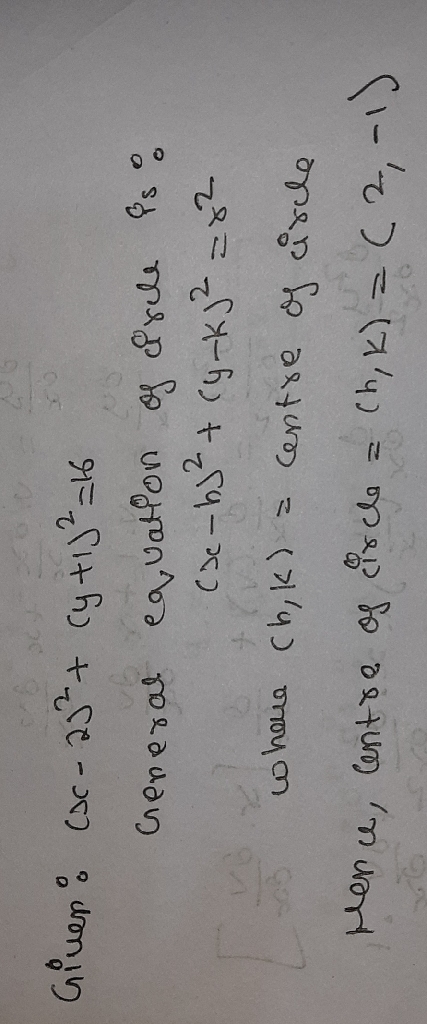 Given: (x-2)²+(y+1)²=16
General equation of circle is:
(x-h)²+(y-k)²=r²
where (h,k) = centre of circle
Hence, centre of circle = (h,k) = (2,-1)